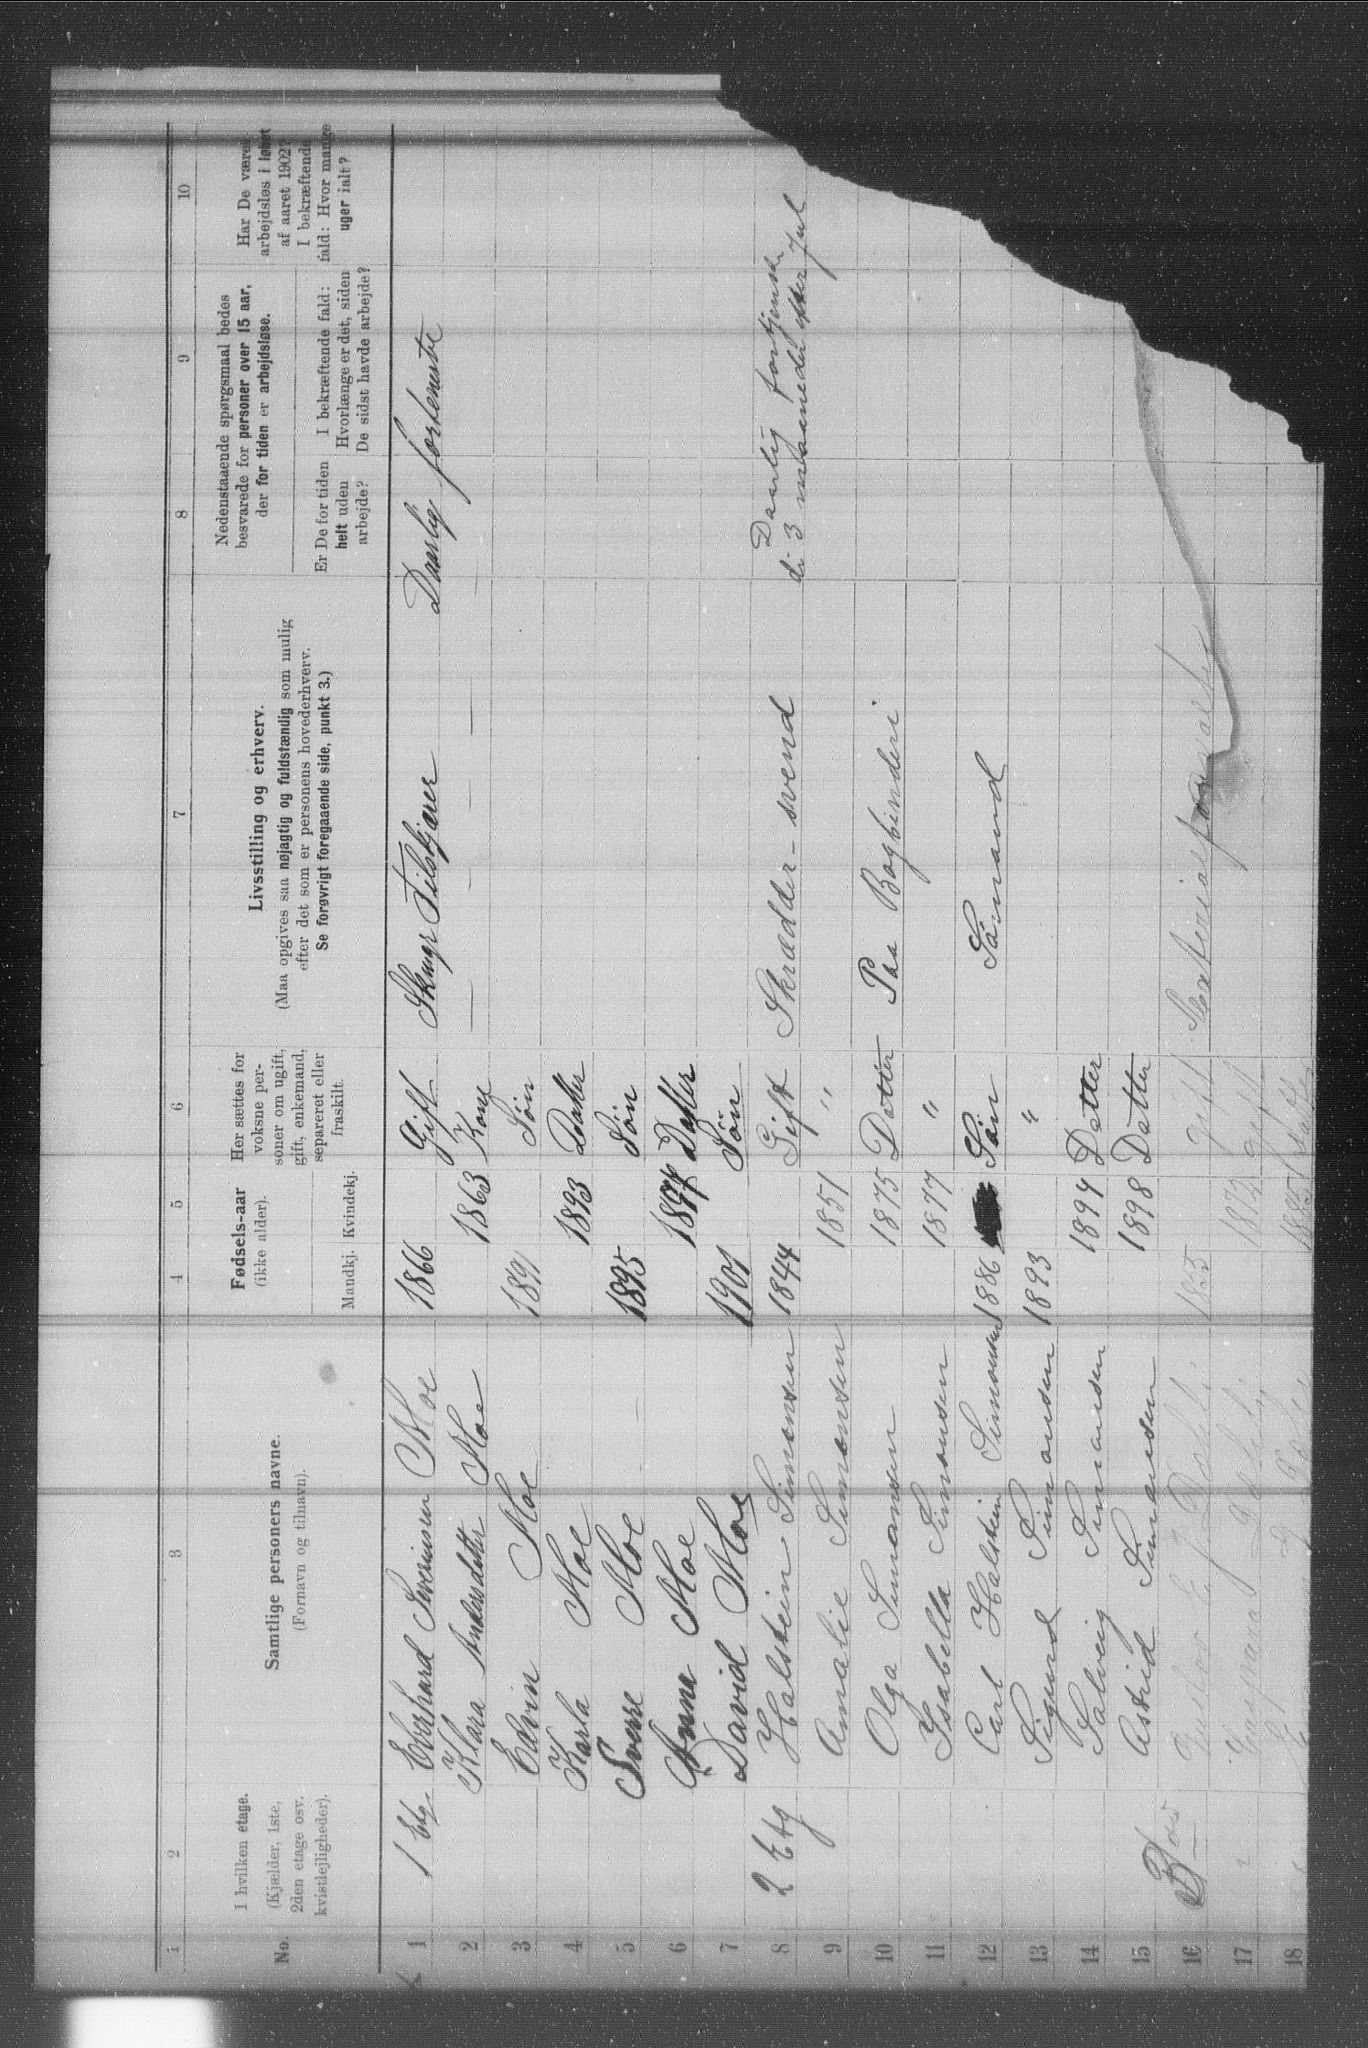 1 2 3 4 5 6 7 8 9 10
No.
I hvilken etage.
(Kjælder, 1ste,
2den etage osv.
kvistlejligheder).
Samtlige personers navne.
(Fornavn og tilnavn).
Fødsels-aar
(ikke alder).
Mandkj. Kvindekj.
Her sættes for
voksne per-
soner om ugift,
gift, enkemand,
separeret eller
fraskilt.
Livsstilling og erhverv.
(Maa opgives saa nøjagtig og fuldstændig som mulig
efter det som er personens hovederhverv.
Se forøvrigt foregaaende side, punkt 3.)
Nedenstaaende spørgsmaal bedes
besvarede for personer over 15 aar,
der for tiden er arbejdsløse.
Er De for tiden
helt uden
arbejde?
I bekræftende fald:
Hvorlænge er det, siden
De sidst havde arbejde?
Har De været
arbejdsløs i løbet
af aaret 1902?
I bekræftende
fald: Hvor mange
uger ialt?
1 1 Etg. Everhard Severinsen Moe 1866 Gift Daarlig forteneste
2 Klara Andersdatter Moe 1863 Kone
3 Edvin Moe 1891 Søn
4 Karla Moe 1893 Datter
5 Sverre Moe 1895 Søn
6 Anna Moe 1897 Datter
7 David Moe 1901 Søn
8 2 Etg Halstein Simonsen 1844 Gift Skrædder-svend Daarlig fortjeneste
di 3 maaneder efter Jul
9 Amalie Simonsen 1851 "
10 Olga Simonsen 1875 Datter Paa Bogbinderi
11 Isabella Simonsen 1877 "
12 Carl Halstein Simonsen 1886 Søn Sømand
13 Sigurd Simonsen 1893 "
14 Solveig Simonsen 1894 Datter
15 Astrid Simonsen 1898 Datter
16 1855 gift Materialforvalter
17 1873 gift
18 1885 Datter